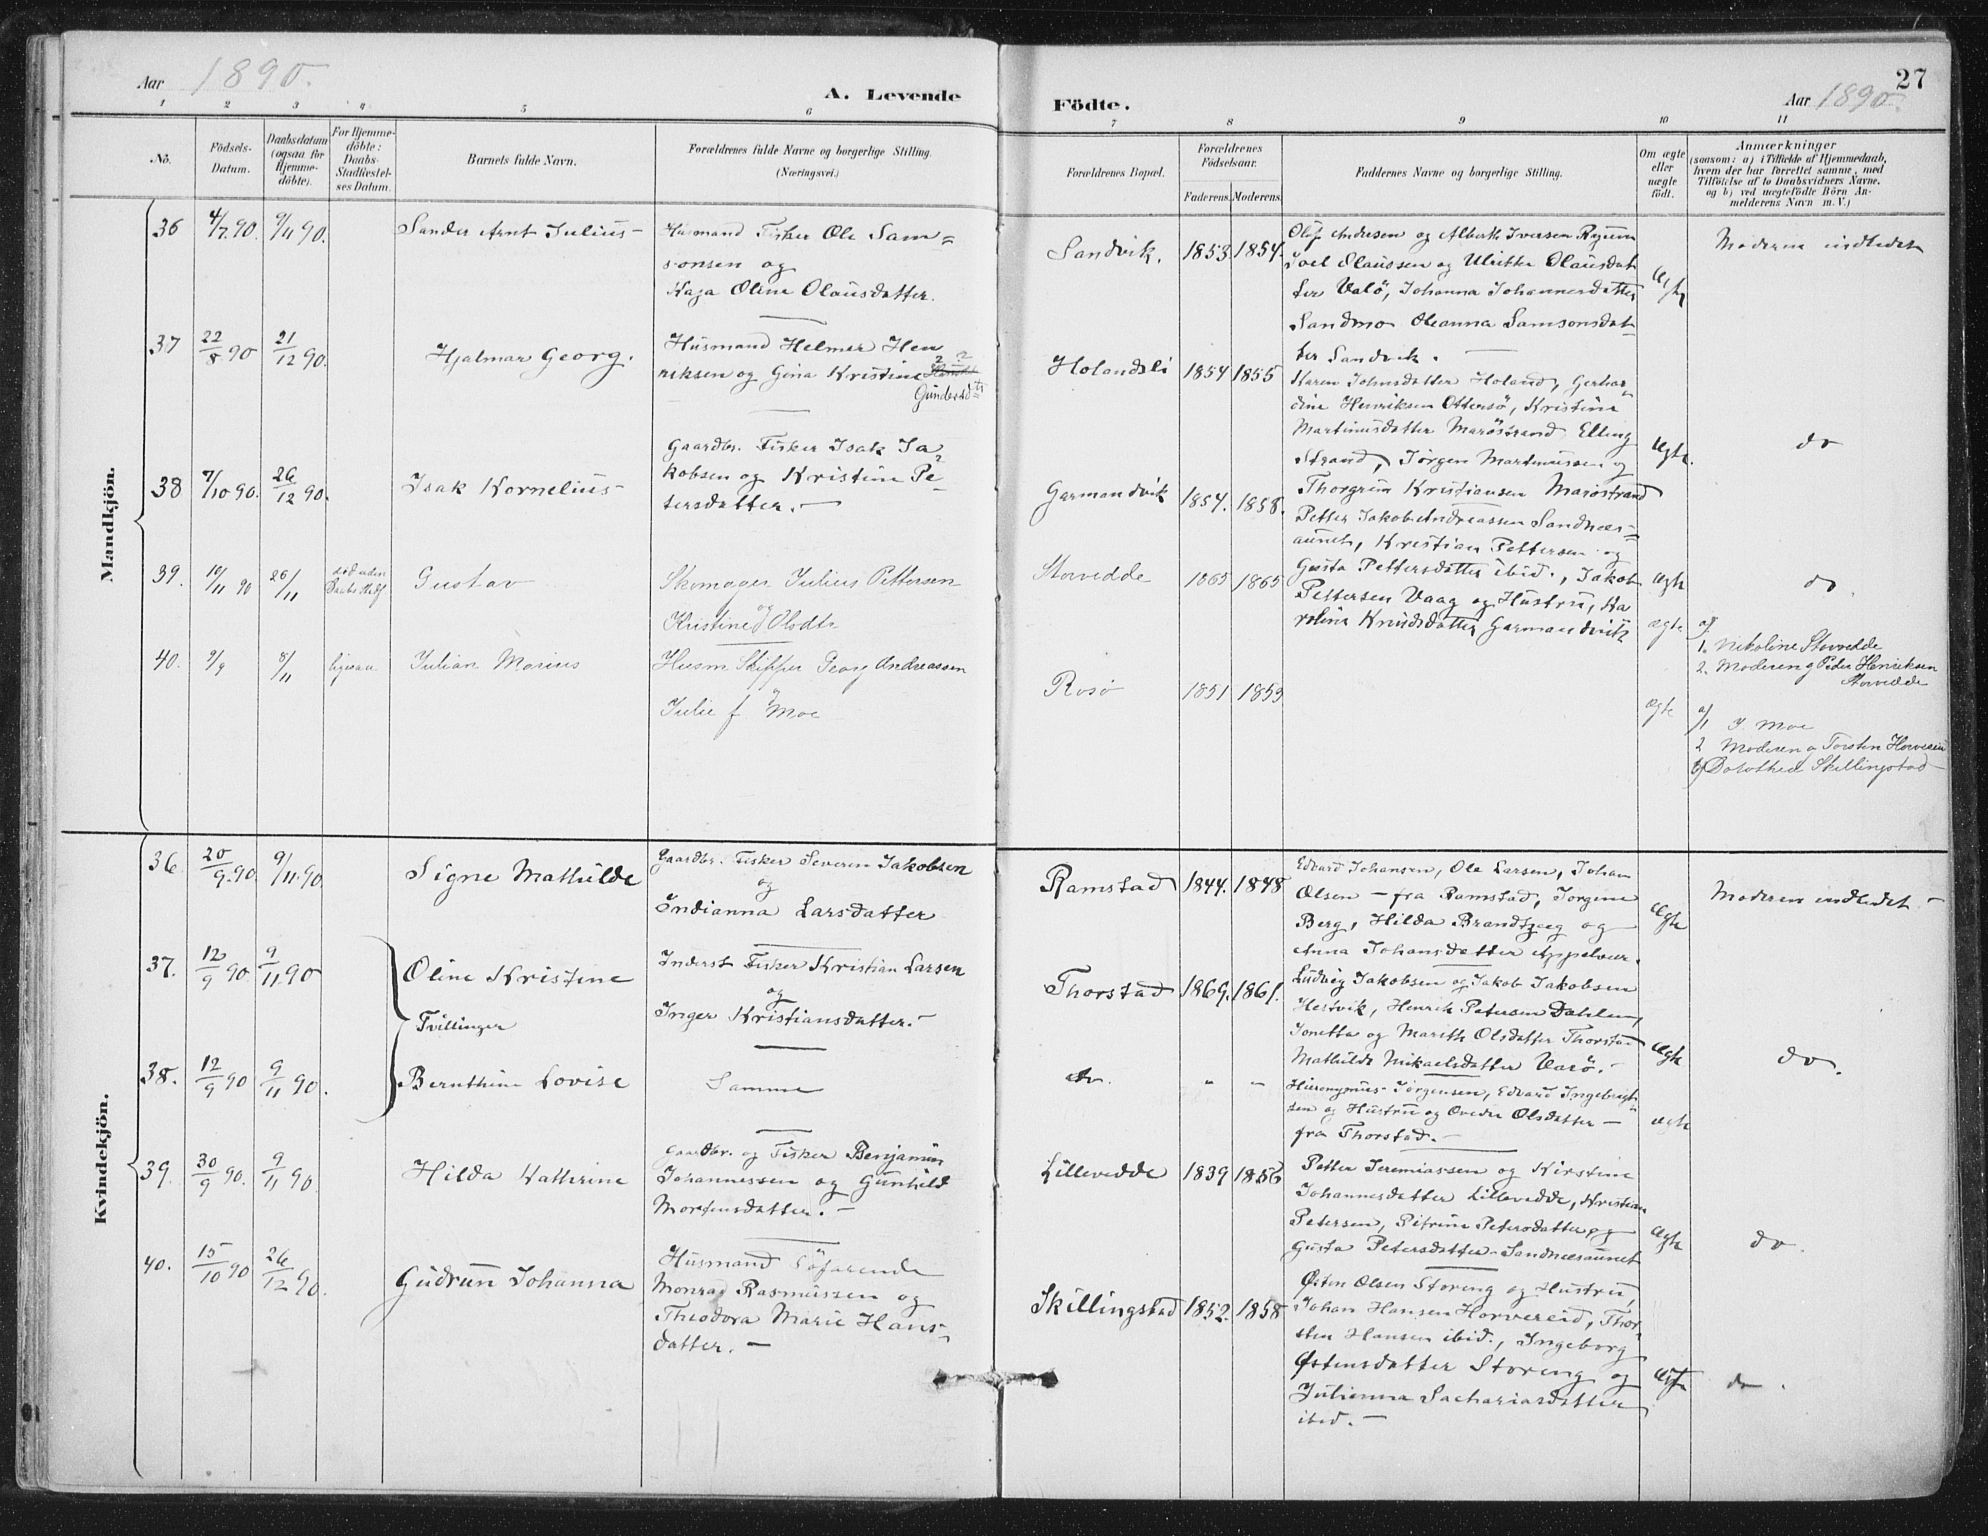 Aar 1890.
A. Levende
Födte.
Aar 1890.
27
1 2 3 4 5 6 7 8 9 10 11
No.
Födsels-
Datum.
Daabsdatum
(ogsaa for
Hjemme-
döbte).
For Hjemme-
döbte:
Daabs-
Stadfæstel-
ses Datum.
Barnets fulde Navn.
Forældrenes fulde Navne og borgerlige Stilling.
(Næringsvei.)
Forældrenes Bopæl.
Forældrenes
Födselsaar.
Faderens. Moderens.
Faddernes Navne og borgerlige Stilling.
Om ægte
eller
uægte
födt.
Anmærkninger
(saasom: a) i Tilfælde af Hjemmedaab,
hvem der har forrettet samme, med
Tilföielse af to Daabsvidners Navne,
og b) ved uægtefödte Börn An-
melderens Navn m. V.)
Mandkjön.
36 4/7 90. 9/11 90. Sander Arnt Julius
Husmand Fisker Ole Sam-
sonsen og
Haja Oline Olausdatter.
Sandvik. 1853 1854.
Olif Andersen og Albert Iversen Ryum
Joel Olaussen og Ulrikke Olausdat
ter Valö, Johanna Johannesdatter
Sandmo Oleanna Samsonsdat-
ter Sandvik.
Ægte
Moderne indledet
37 22/8 90 21/12 90. Hjalmar Georg.
Husmand Helmer Hen
riksen og Gina Kristine
Gundersd
Holandsli 1854 1855
Karen Johnsdatter Holand, Gerhar-
dine Henriksen Ottersö, Kristine
Martinusdatter Maröstrand Elling
Strand, Jörgen Martinussen og
Thorgrim Kristiansen Maröstrand
Ægte.
do
38 7/10 90. 26/12 90. Isak Kornelius
Gaardbr. Fisker Isak Ja-
kobsen og Kristine Pe-
tersdatter.
Garmandvik 1854. 1858.
Petter Jakob Andreassen Sandnes-
aunet, Kristian Pettersen og
Gusta Pettersdatter ibid., Jakob
Pettersen Vaag og Hustru, Ka
roline Knudsdatter Garmandvik
Ægte
do.
39. 10/11 90 26/11 död uden
Daabs Stadf Gustav
Skomager Julius Pettersen
og
Kristine Olsdtr
Storvedde 1865 1865
ægte
a/
1. Nikoline Storvedde
2. Moderen og Peder Henriksen
Storvedde
40. 9/9 8/11 ligesaa Julian Marius
Husm Skipper Georg Andreassen
Julie f Moe
Rosø 1851 1853
ægte
a/
1 J. Moe
2 Moderen og Torsten Horvereid
b) Dorothea Skillingstad
Kvindekjön.
36 20/9.90. 9/11.90. Signe Mathilde
Gaardbr. Fisker Severin Jakobsen
og
Indianna Larsdatter
Ramstad 1844. 1848
Edvard Johansen, Ole Larsen, Johan
Olsen — fra Ramstad, Jorgine
Berg, Hilda Brandtzæg og
Anna Johansdatter Appelvær.
Ægte
Moderen indledet.
37. 12/9 90. 9/11.90 Oline Kristine
Inderst Fisker Kristian Larsen
og
Inger Kristiansdatter.
Tvillinger
Thorstad 1869. 1861.
Ludvig Jakobsen og Jakob Jakobsen
Hestvik, Henrik Petersen Dahlen,
Jonetta og Marith Olsdatter Thorstad
Mathilde Mikaelsdatter Varö.
Ægte
do.
38. 12/9 90 9/11 90. Bernthine Lovise
Samme
do. " "
Hieronymus Jörgensen, Edvard Ingebrigt-
sen og Hustru og Ovedie Olsdatter —
fra Thorstad.
ægte
39. 30/9 90. 9/11 90. Hilda Kathrine
Gaardbr. og Fisker Benjamin
Johannessen og Gunhild
Mortensdatter.
Lillevedde 1839 1856
Petter Jeremiassen og Kirstine
Johannesdatter Lillevedde, Kristian
Petersen, Pitrine Petersdatter og
Gusta Petersdatter Sandnesaunet
Ægte
do.
40. 15/10 90 26/12 90. Gudrun Johanna
Husmand Söfarende
Monrad Rasmussen og
Theodora Marie Hans-
datter.
Skillingstad 1852. 1858
Østen Olsen Storeng og Hustru,
Johan Hansen Horvereid, Thor-
sten Hansen ibid., Ingeborg
Østensdatter Storeng og
Julianna Sachariasdatter
ibid.
Ægte
do.